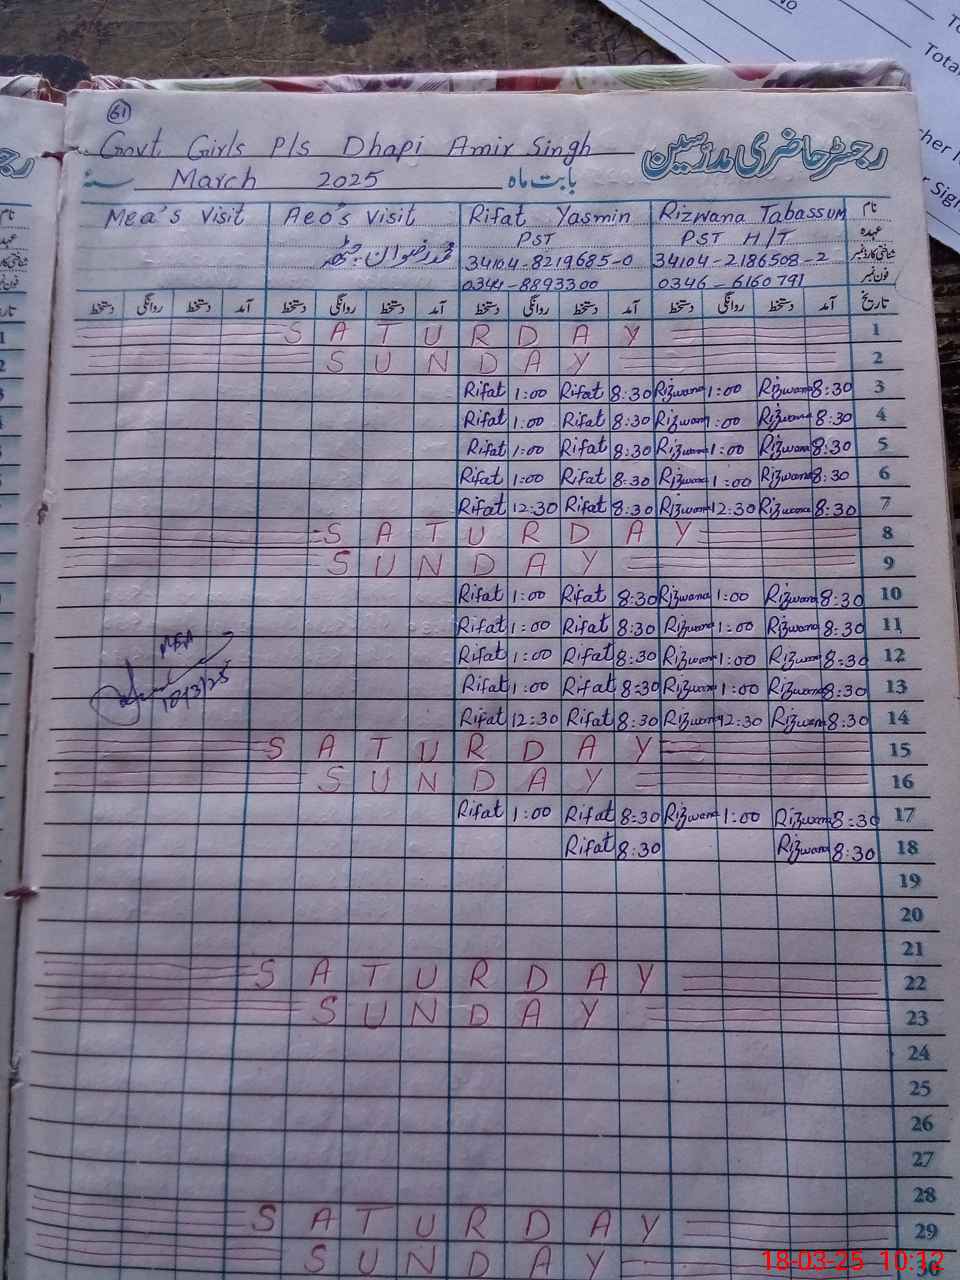 No
Total
61
Govt. Girls P/s Dhapi Amir Singh
رجسٹر حاضری مدرسین
March 2025 بابت ماہ سنہ
Mea's Visit Aeo's Visit Rifat Yasmin Rizwana Tabassum نام
PST PST H/T عہدہ
محمد رضوان چٹھہ 34104-8219685-0 34104-2186508-2 شناختی کارڈ نمبر
0344-8893300 0346-6160791 فون نمبر
دستخط روانگی دستخط آمد دستخط روانگی دستخط آمد دستخط روانگی دستخط آمد دستخط روانگی دستخط آمد تاریخ
SATURDAY 1
SUNDAY 2
Rifat 1:00 Rifat 8:30 Rizwana 1:00 Rizwana 8:30 3
Rifat 1:00 Rifat 8:30 Rizwana 1:00 Rizwana 8:30 4
Rifat 1:00 Rifat 8:30 Rizwana 1:00 Rizwana 8:30 5
Rifat 1:00 Rifat 8:30 Rizwana 1:00 Rizwana 8:30 6
Rifat 12:30 Rifat 8:30 Rizwana 12:30 Rizwana 8:30 7
SATURDAY 8
SUNDAY 9
Rifat 1:00 Rifat 8:30 Rizwana 1:00 Rizwana 8:30 10
Rifat 1:00 Rifat 8:30 Rizwana 1:00 Rizwana 8:30 11
MEA Rifat 1:00 Rifat 8:30 Rizwana 1:00 Rizwana 8:30 12
18/3/25 Rifat 1:00 Rifat 8:30 Rizwana 1:00 Rizwana 8:30 13
Rifat 12:30 Rifat 8:30 Rizwana 12:30 Rizwana 8:30 14
SATURDAY 15
SUNDAY 16
Rifat 1:00 Rifat 8:30 Rizwana 1:00 Rizwana 8:30 17
Rifat 8:30 Rizwana 8:30 18
19
20
21
SATURDAY 22
SUNDAY 23
24
25
26
27
28
SATURDAY 29
SUNDAY 30
18-03-25 10:12